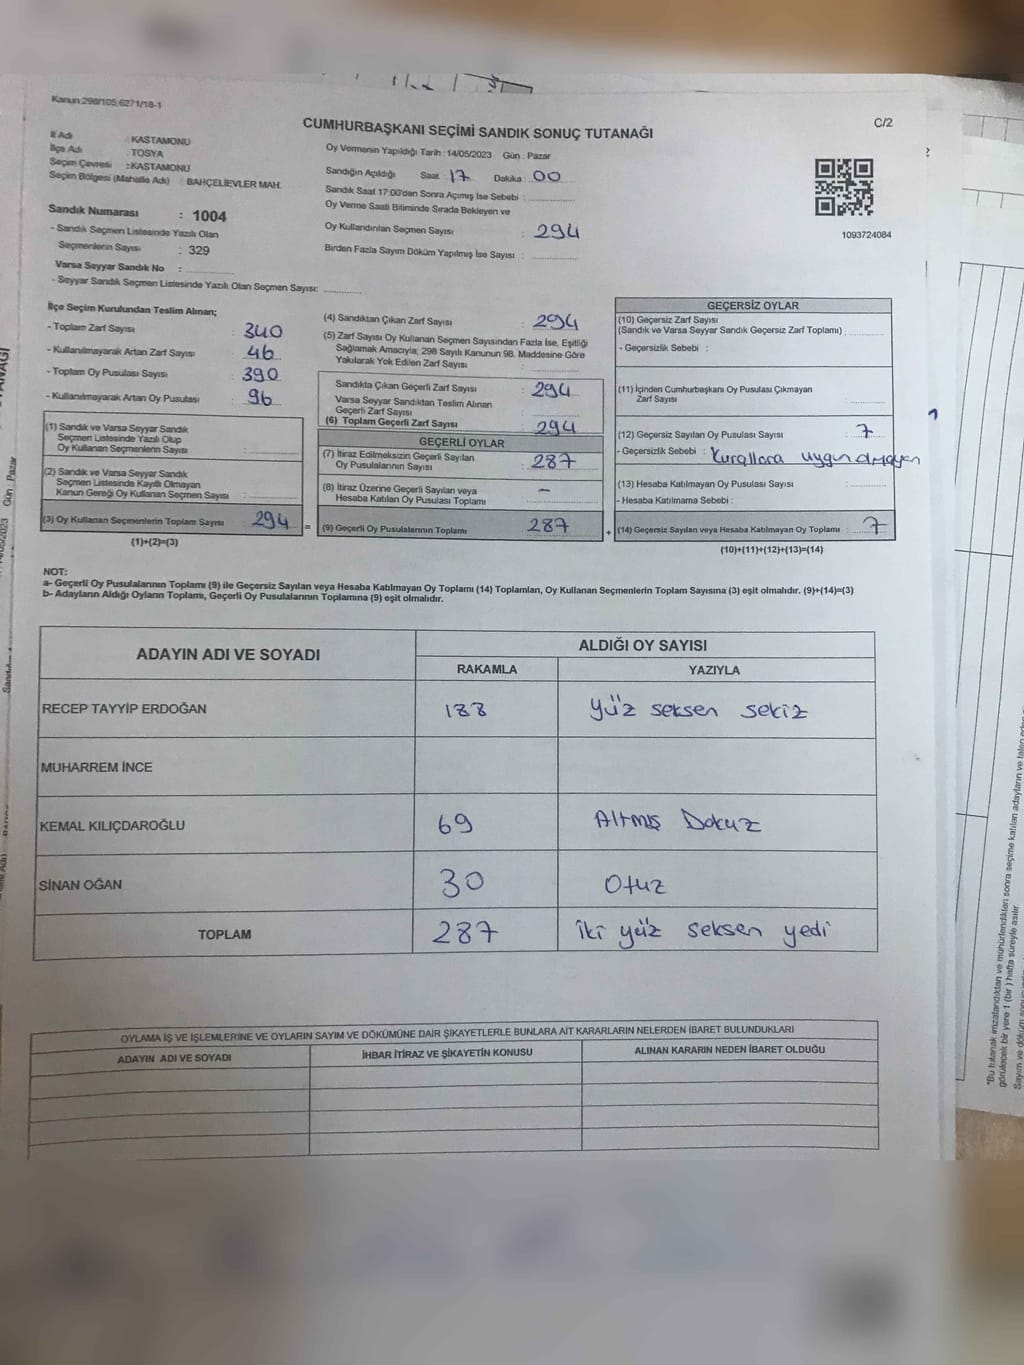 Kanun:298/105;6271/18-1
CUMHURBAŞKANI SEÇİMİ SANDIK SONUÇ TUTANAĞI
C/2
İl Adı : KASTAMONU
İlçe Adı : TOSYA
Seçim Çevresi : KASTAMONU
Seçim Bölgesi (Mahalle Adı) : BAHÇELİEVLER MAH.
Sandık Numarası : 1004
- Sandık Seçmen Listesinde Yazılı Olan
Seçmenlerin Sayısı : 329
Varsa Seyyar Sandık No :
- Seyyar Sandık Seçmen Listesinde Yazılı Olan Seçmen Sayısı:
Oy Vermenin Yapıldığı Tarih : 14/05/2023 Gün : Pazar
Sandığın Açıldığı Saat : 17 Dakika : 00
Sandık Saat 17:00'den Sonra Açımış İse Sebebi :
Oy Verme Saati Bitiminde Sırada Bekleyen ve
Oy Kullandırılan Seçmen Sayısı : 294
Birden Fazla Sayım Döküm Yapılmış İse Sayısı :
1093724084
İlçe Seçim Kurulundan Teslim Alınan;
- Toplam Zarf Sayısı : 340
- Kullanılmayarak Artan Zarf Sayısı : 46
- Toplam Oy Pusulası Sayısı : 390
- Kullanılmayarak Artan Oy Pusulası : 96
(1) Sandık ve Varsa Seyyar Sandık
Seçmen Listesinde Yazılı Olup
Oy Kullanan Seçmenlerin Sayısı :
(2) Sandık ve Varsa Seyyar Sandık
Seçmen Listesinde Kayıtlı Olmayan
Kanun Gereği Oy Kullanan Seçmen Sayısı :
(3) Oy Kullanan Seçmenlerin Toplam Sayısı : 294 =
(1)+(2)=(3)
(4) Sandıktan Çıkan Zarf Sayısı : 294
(5) Zarf Sayısı Oy Kullanan Seçmen Sayısından Fazla İse, Eşitliği
Sağlamak Amacıyla; 298 Sayılı Kanunun 98. Maddesine Göre
Yakılarak Yok Edilen Zarf Sayısı :
Sandıkta Çıkan Geçerli Zarf Sayısı : 294
Varsa Seyyar Sandıktan Teslim Alınan
Geçerli Zarf Sayısı :
(6) Toplam Geçerli Zarf Sayısı : 294
GEÇERLİ OYLAR
(7) İtiraz Edilmeksizin Geçerli Sayılan
Oy Pusulalarının Sayısı : 287
(8) İtiraz Üzerine Geçerli Sayılan veya
Hesaba Katılan Oy Pusulası Toplamı : -
(9) Geçerli Oy Pusulalarının Toplamı : 287 +
GEÇERSİZ OYLAR
(10) Geçersiz Zarf Sayısı
(Sandık ve Varsa Seyyar Sandık Geçersiz Zarf Toplamı) :
- Geçersizlik Sebebi :
(11) İçinden Cumhurbaşkanı Oy Pusulası Çıkmayan
Zarf Sayısı :
(12) Geçersiz Sayılan Oy Pusulası Sayısı : 7
- Geçersizlik Sebebi : Kurallara uygun olmayan
(13) Hesaba Katılmayan Oy Pusulası Sayısı :
- Hesaba Katılmama Sebebi :
(14) Geçersiz Sayılan veya Hesaba Katılmayan Oy Toplamı : 7
(10)+(11)+(12)+(13)=(14)
NOT:
a- Geçerli Oy Pusulalarının Toplamı (9) ile Geçersiz Sayılan veya Hesaba Katılmayan Oy Toplamı (14) Toplamları, Oy Kullanan Seçmenlerin Toplam Sayısına (3) eşit olmalıdır. (9)+(14)=(3)
b- Adayların Aldığı Oyların Toplamı, Geçerli Oy Pusulalarının Toplamına (9) eşit olmalıdır.
ADAYIN ADI VE SOYADI
ALDIĞI OY SAYISI
RAKAMLA YAZIYLA
RECEP TAYYİP ERDOĞAN 188 yüz seksen sekiz
MUHARREM İNCE
KEMAL KILIÇDAROĞLU 69 Altmış Dokuz
SİNAN OĞAN 30 Otuz
TOPLAM 287 iki yüz seksen yedi
OYLAMA İŞ VE İŞLEMLERİNE VE OYLARIN SAYIM VE DÖKÜMÜNE DAİR ŞİKAYETLERLE BUNLARA AİT KARARLARIN NELERDEN İBARET BULUNDUKLARI
ADAYIN ADI VE SOYADI İHBAR İTİRAZ VE ŞİKAYETİN KONUSU ALINAN KARARIN NEDEN İBARET OLDUĞU
"Bu tutanak imzalandıktan ve mühürlendikten sonra seçime katılan adayların ve
görülecek bir yere 1 (bir) hafta süreyle asılır.
Gün : Pazar